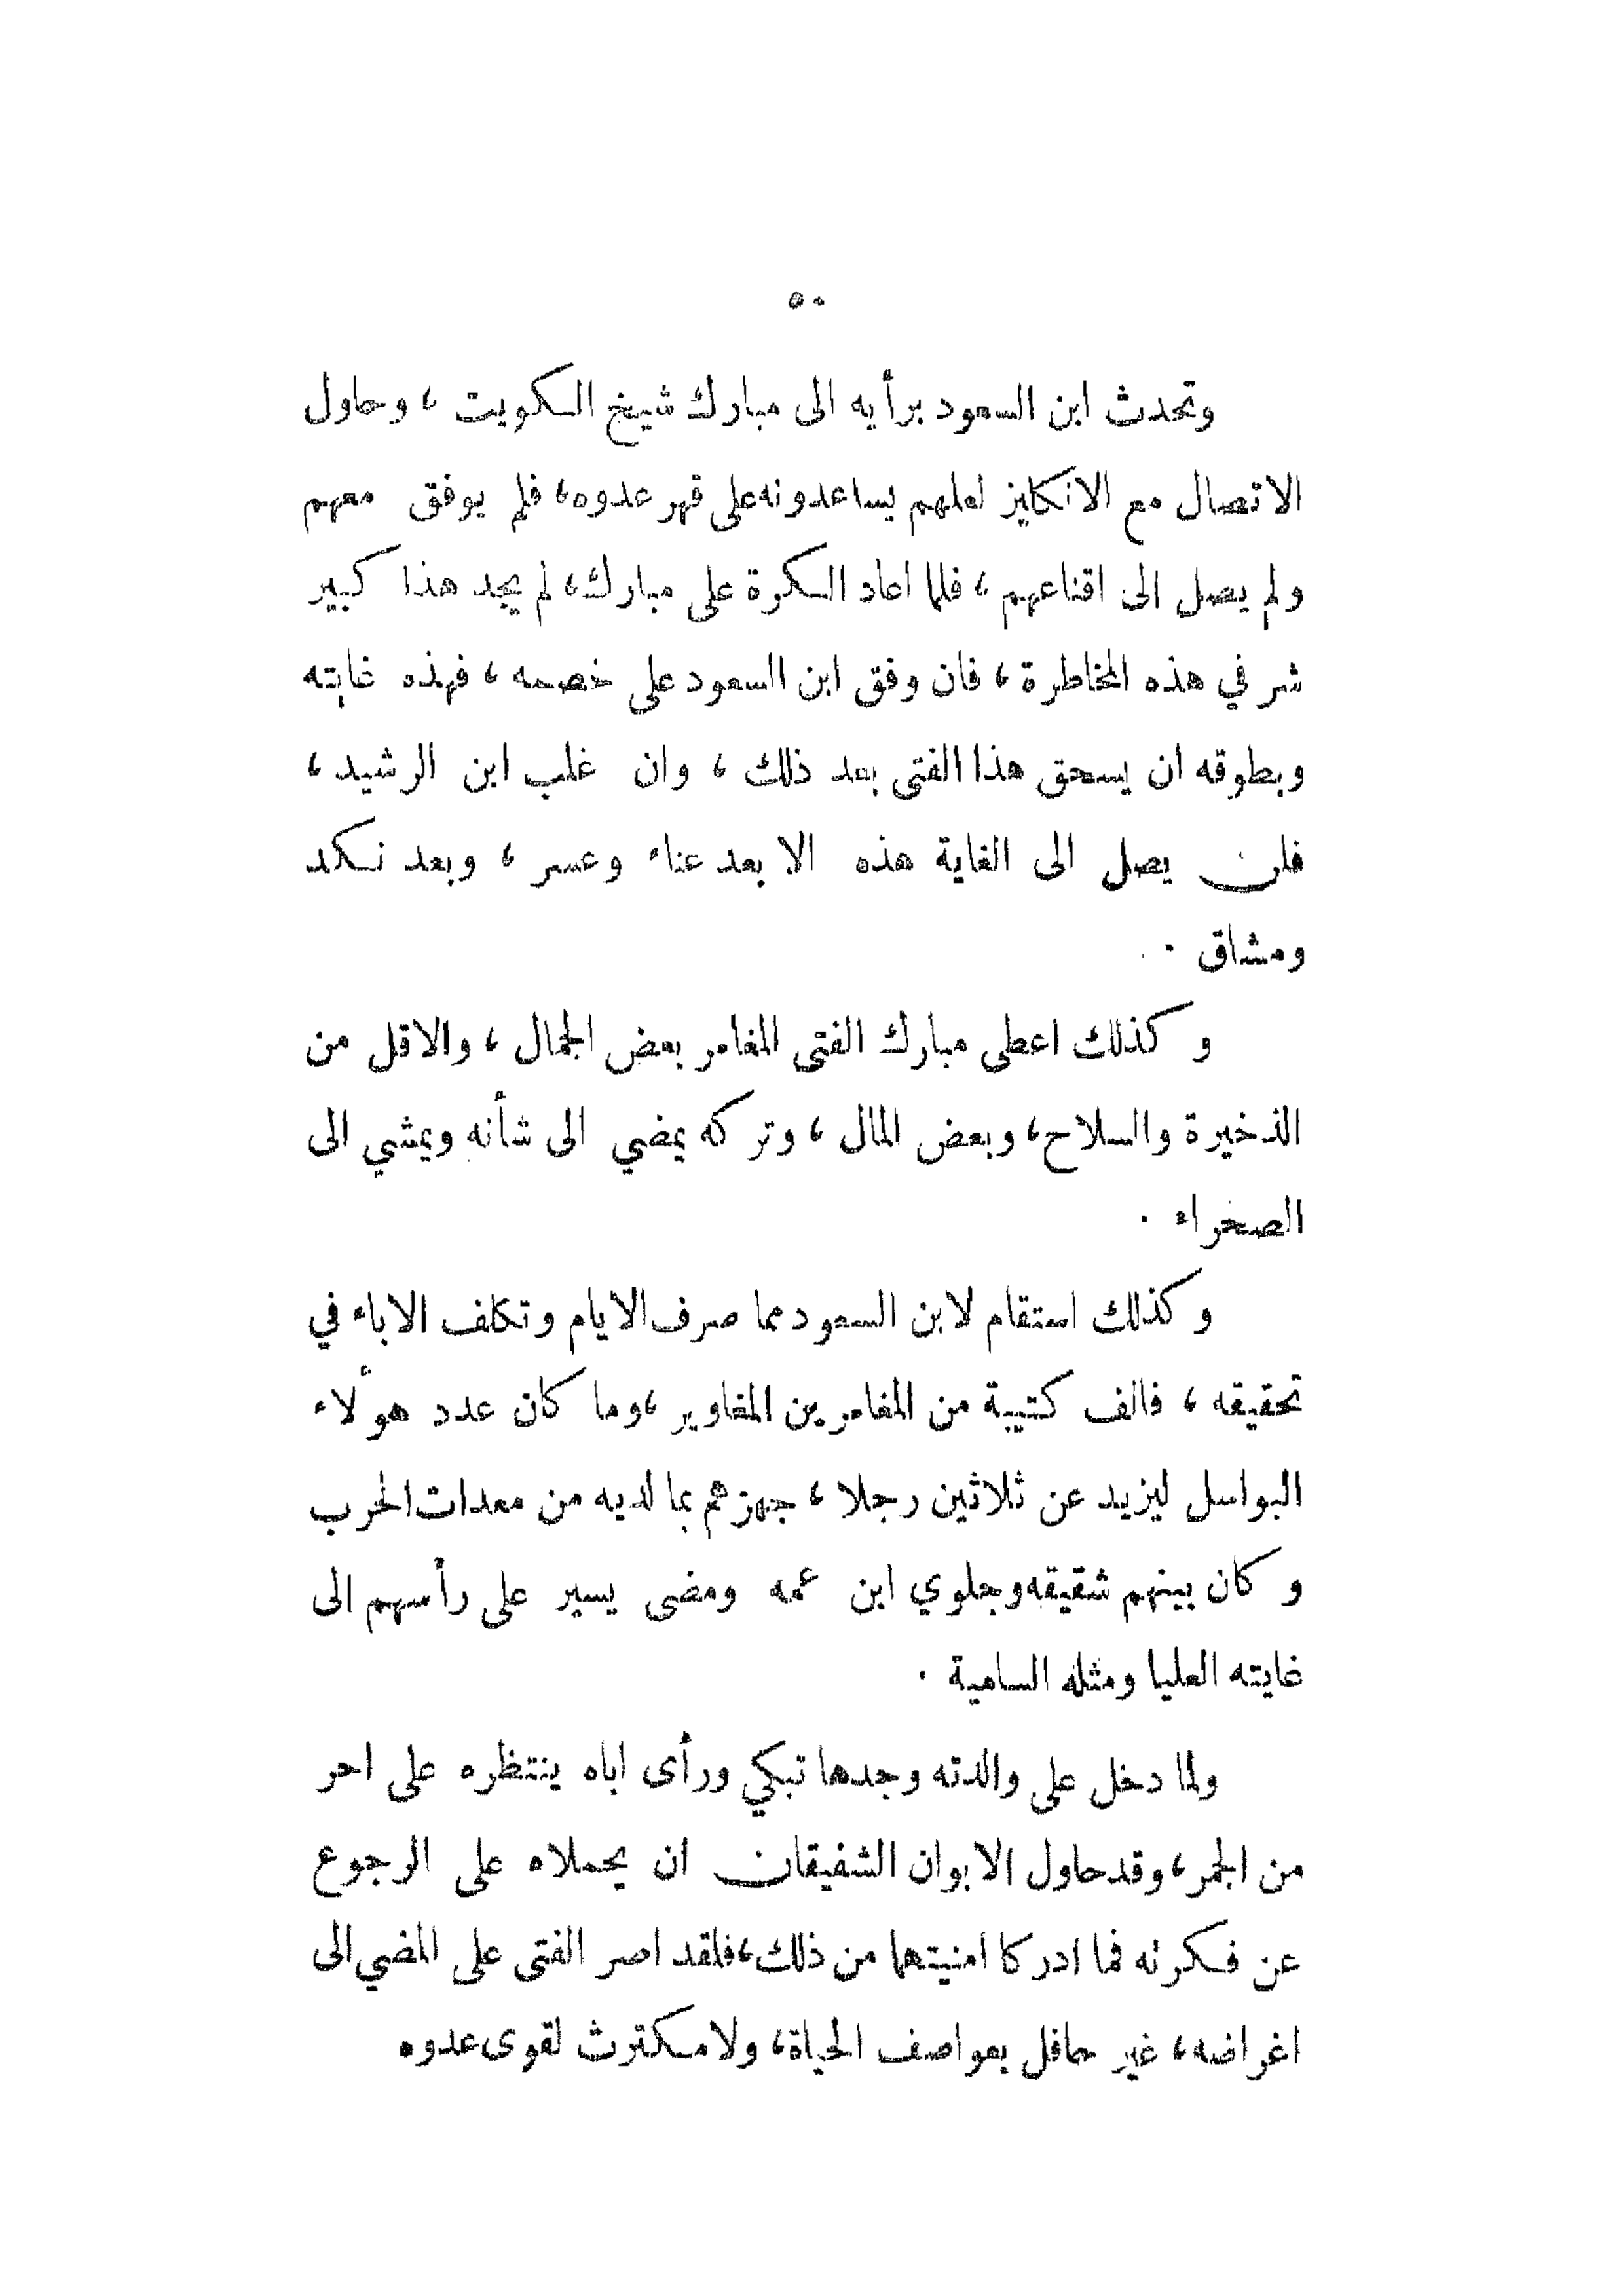 ٥٠
وتحدث ابن السعود برأيه الى مبارك شيخ الكويت ، وحاول
الاتصال مع الانكليز لعلهم يساعدونه على قهر عدوه، فلم يوفق معهم
ولم يصل الى اقناعهم ، فلما اعاد الكرة على مبارك، لم يجد هذا كبير
شر في هذه المخاطرة ، فان وفق ابن السعود على خصمه ، فهذه غايته
وبطوقه ان يسحق هذا الفتى بعد ذلك ، وان غلب ابن الرشيد ،
فلن يصل الى الغاية هذه الا بعد عناء وعسر ، وبعد نكد
ومشاق .
وكذلك اعطى مبارك الفتى المغامر بعض الجمال ، والاقل من
الذخيرة والسلاح، وبعض المال ، وتركه يمضي الى شأنه ويمشي الى
الصخراء .
وكذلك استقام لابن السعود مما صرف الايام وتكلف الاباء في
تحقيقه ، فالف كتيبة من المغامرين المغاوير ،وما كان عدد هؤلاء
البواسل ليزيد عن ثلاثين رجلا ، جهزهم بما لديه من معدات الحرب
وكان بينهم شقيقه وجلوي ابن عمه ومضى يسير على رأسهم الى
غايته العليا ومثله السامية .
ولما دخل على والدته وجدها تبكي ورأى اباه ينتظره على احر
من الجمر، وقد حاول الابوان الشفيقان ان يحملاه على الرجوع
عن فكرته فما ادركا امنيتهما من ذلك،فلقد اصر الفتى على المضي الى
اغراضه، غير حافل بعواصف الحياة، ولا مكترث لقوى عدوه